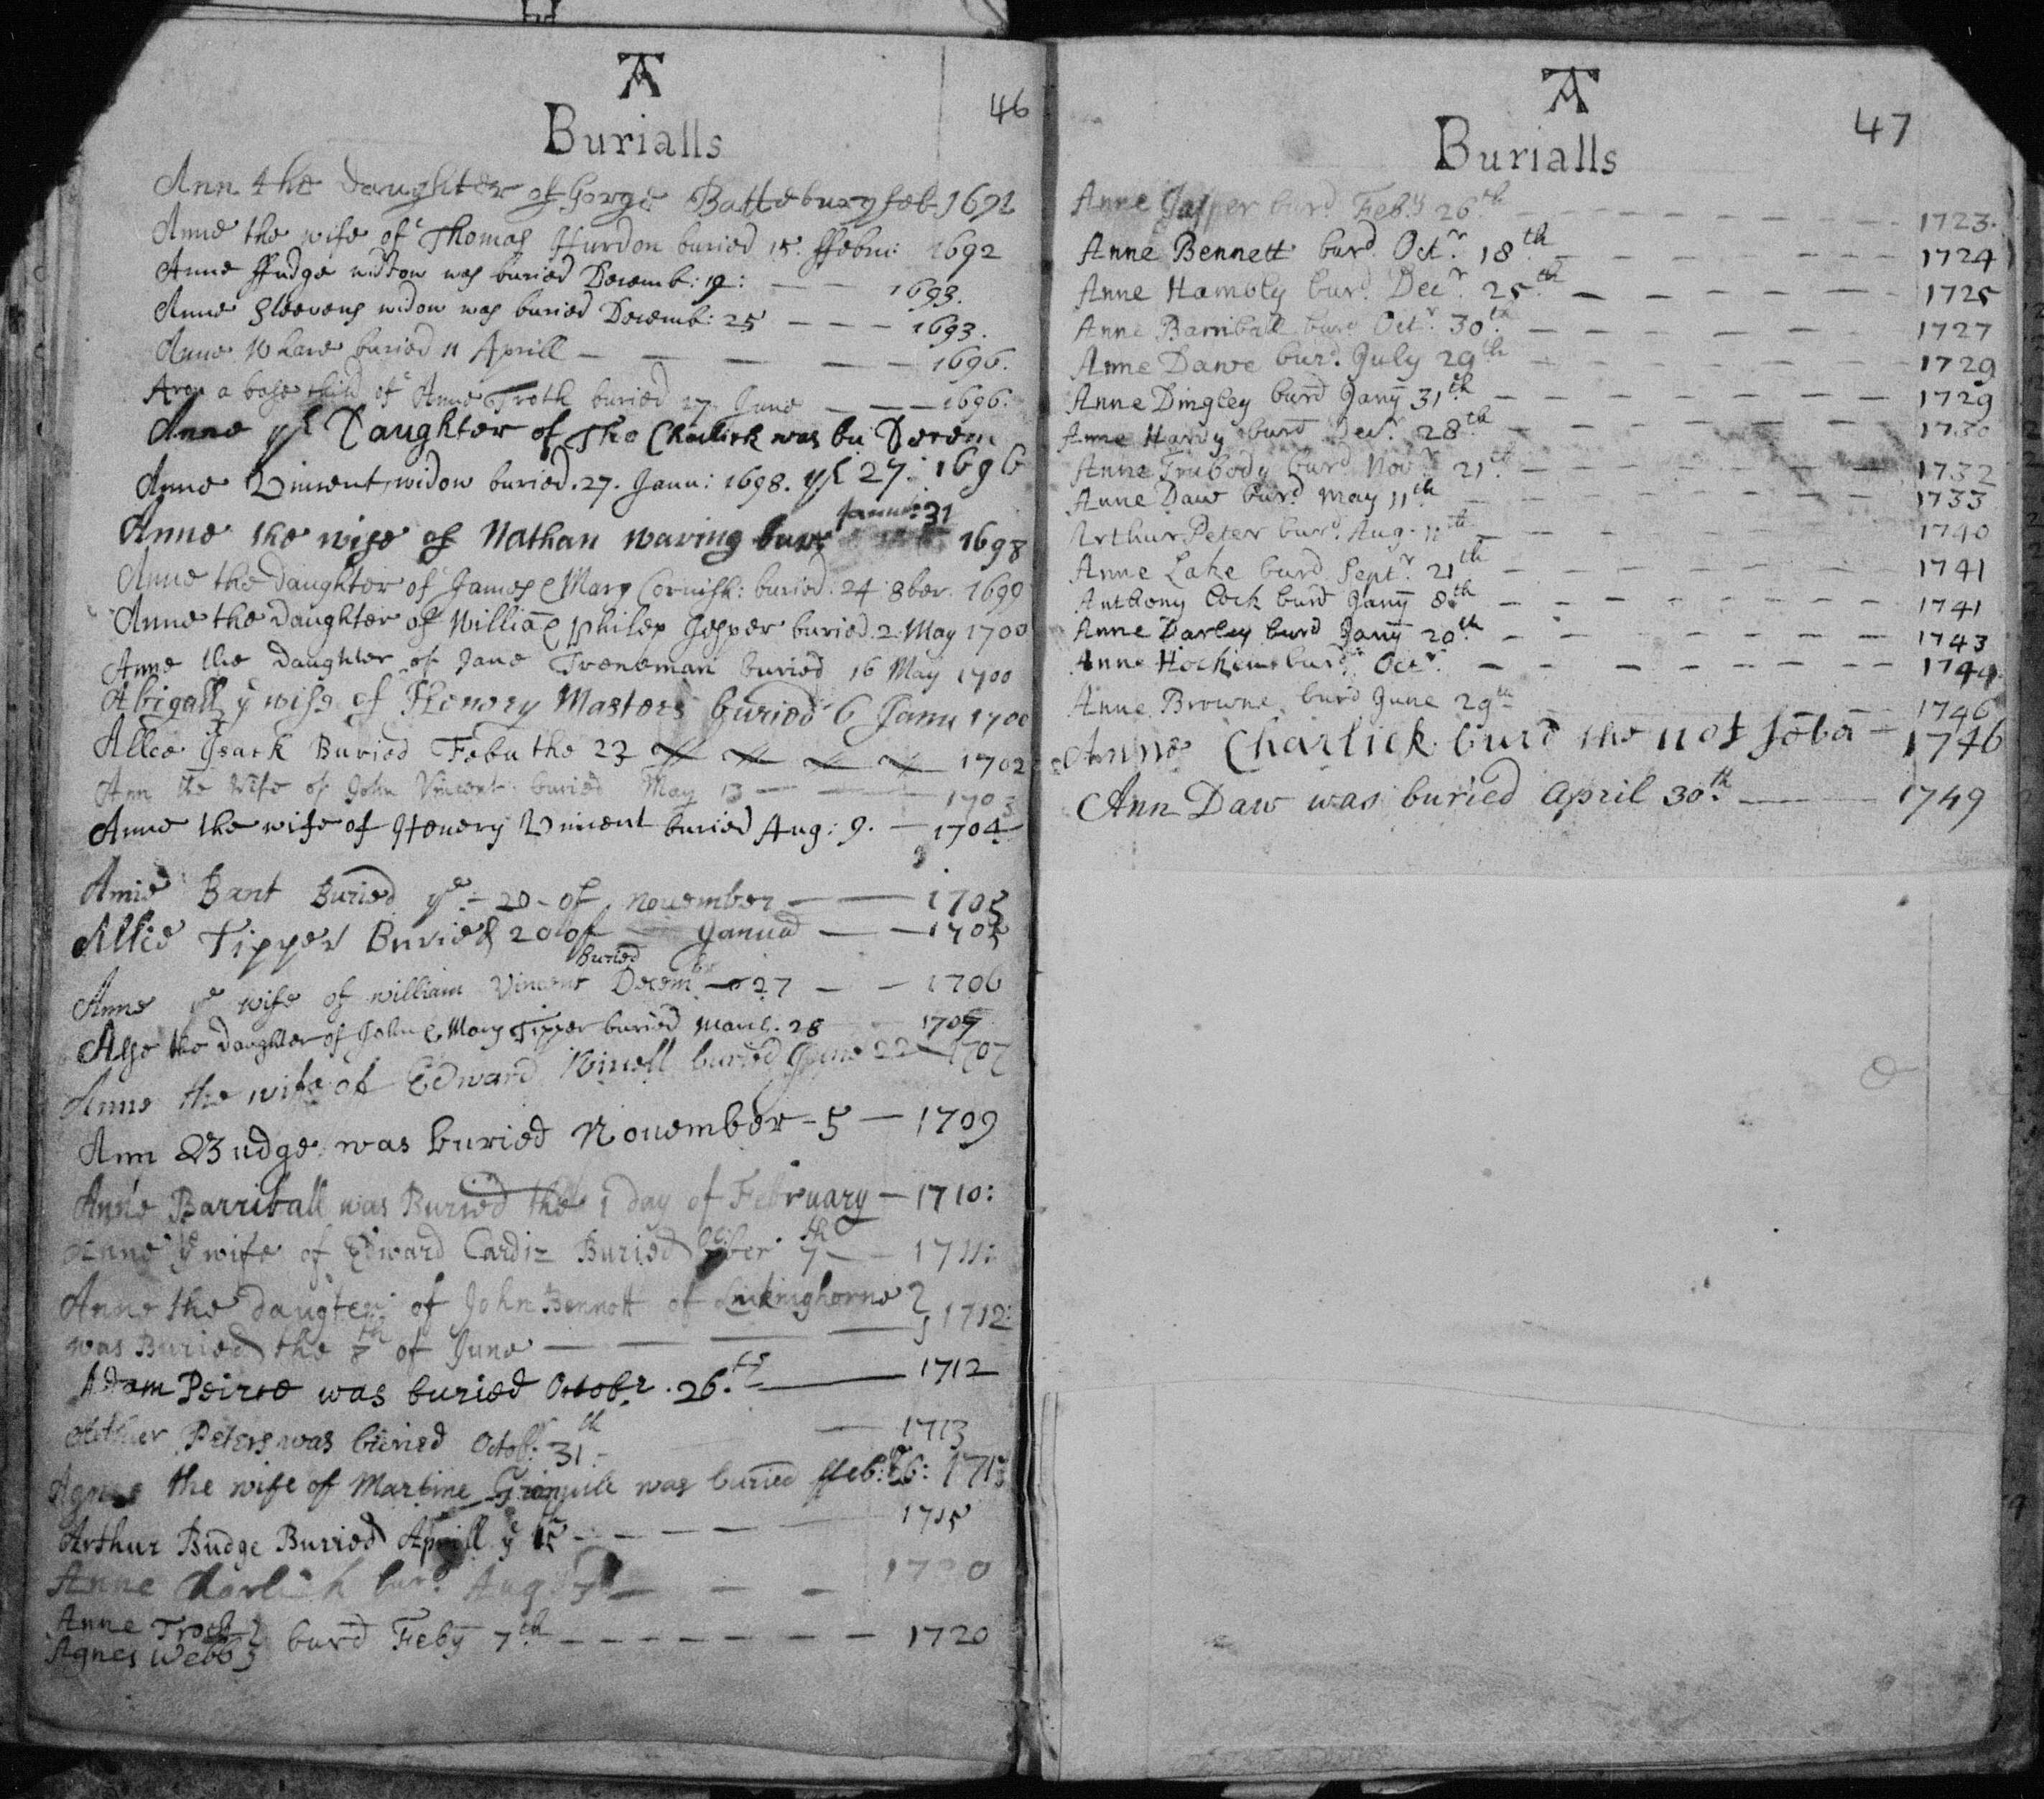 A
Burialls
46
Ann the daughter of Gorge Battebury feb 1691
Anne the wife of Thomas Hurdon buried 15 ffebru: 1692
Anne ffudge widdow was buried Decemb: 19: — — 1693.
Anne Steevens widow was buried Decemb: 25 — — — 1693.
Anne Whare buried 11 Aprill — — — — — 1696.
a base child of Anne Troth buried 27 June — — — 1696:
Anne ye Daughter of Tho Charlick was bu Decem
ye 27: 1696
Anne Vincent, widow buried. 27. Janu: 1698.
Anne the wife of Nathan waring bur Janu: 31 1698
Anne the daughter of James & Mary Cornish: buried. 24 8ber. 1699
Anne the daughter of William & Philep Jesper buried. 2. May 1700
Anne the daughter of Jane Treneman buried 16 May 1700
Abigall ye wife of Henery Masters buried 6 Janu 1700
Allce Isack Buried Febu the 23 1702
Ann the Wife of John Vincent buried May 13 — — — 1703
Anne the wife of Henery Vincent buried Aug: 9. — 1704
Amie Bant Buried ye - 20 - of november — — 1705
Allce Tipper Buried 20 of Janua — — 1705
Anne ye wife of william Vincent Buried Decembr 27 — — 1706
Alse the daughter of John & Mary Tipper buried March. 28 1707
Anne the wife of Edward buried June 22 — 1707
Ann Budge was buried November - 5 — 1709
Anne Barriball was Buried the 1 day of February — 1710:
Anne ye wife of Edward Cardiz Buried ber 7th — 1711:
Anne the daugter of John Bennott of Linkinghorne
was Buried the 8th of June — — — — 1712:
Adam Peirce was buried Octobr. 26. — 1712
Arthur Peters was buried Octob: 31th — 1713
Agnes the wife of Martine was buried ffeb: 1713
Arthur Budge Buried Aprill ye 15 — — — — 1715
Anne Charlich burd Aug 7 — — — 1720
Anne Troth
Agnes Webb } burd Feby 7th — — — — — — — 1720
A
Burialls
47
Anne Jasper burd Feby 26th — — — — — — — — 1723.
Anne Bennett burd Octr. 18th — — — — — — — 1724
Anne Hambly burd. Decr. 25th — — — — — — — 1725
Anne Barriball burd Octr 30th — — — — — — — 1727
Anne Dawe burd. July 29th — — — — — — 1729
Anne Dingley burd Jany 31th — — — — — — — 1729
Anne Hardy burd Decr. 28th — — — — — — — 1730
Anne Trubody burd Novr 21th — — — — — — 1732
Anne Daw burd May 11th — — — — — — — 1733
Arthur Peter burd. Aug. 11th — — — — — — 1740
Anne Lake burd Septr. 21th — — — — — — — 1741
Anthony Cock burd Jany 8th — — — — — — — 1741
Anne Darley burd Jany 20th — — — — — — — 1743
Anne Hockin burd. Octr. — — — — — — — — 1744
Anne Browne burd June 29th — 1746
Anne Charlick burd the 11 of — 1746
Ann Daw was buried april 30th. — 1749